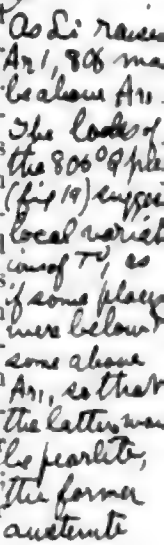 As Si raises
Ar1, 806 may
be above Ar1.
The looks of
the 806° pie
(fig 19) sugges
local variat
ions of T, as
if some places
were below &
some above
Ar1, so that
the latter may
be pearlite,
the former
austenite